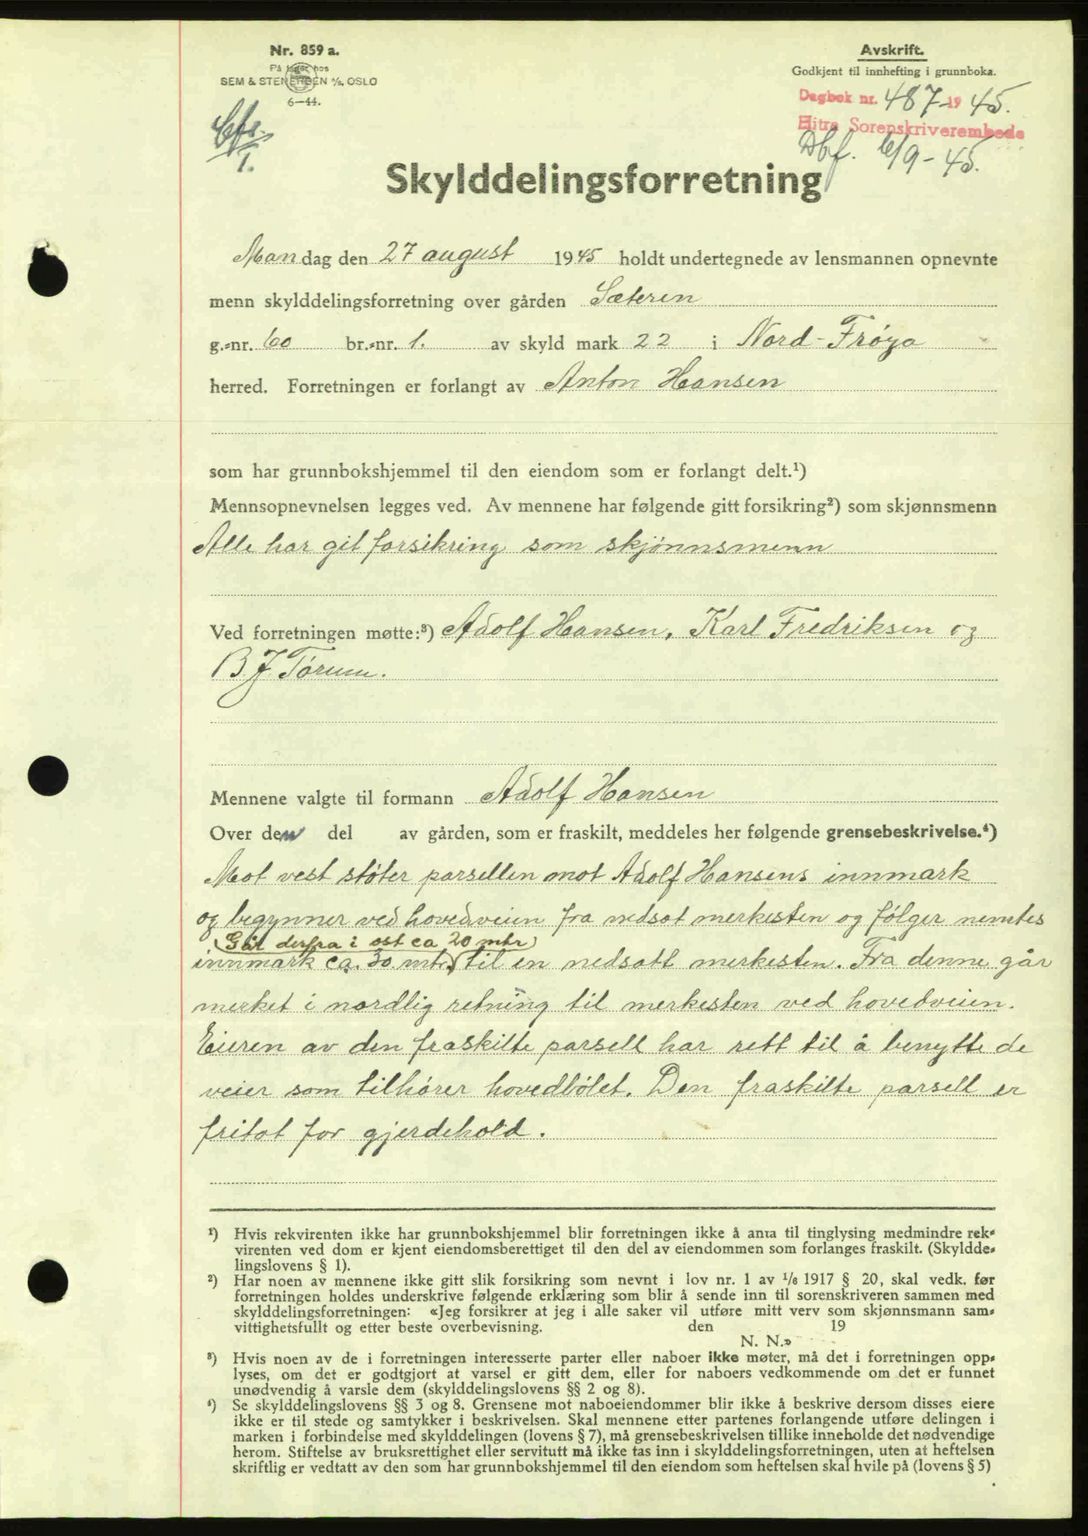 Nr. 859 a.
På lager hos
SEM & STENERSEN A/S, OSLO
6—44.
Avskrift.
Godkjent til innhefting i grunnboka.
Dagbok nr. 487 1945.
Hitra Sorenskriverembede
Dbf. 6/9-45.
Skylddelingsforretning
Mandag den 27 august 1945 holdt undertegnede av lensmannen opnevnte
menn skylddelingsforretning over gården Sæteren
g.-nr. 60 br.-nr. 1. av skyld mark 22 i Nord-Frøya
herred. Forretningen er forlangt av Anton Hansen
som har grunnbokshjemmel til den eiendom som er forlangt delt.¹)
Mennsopnevnelsen legges ved. Av mennene har følgende gitt forsikring²) som skjønnsmenn
Alle har git forsikring som skjønnsmenn
Ved forretningen møtte:³) Adolf Hansen, Karl Fredriksen og
B. J. Tørum.
Mennene valgte til formann Adolf Hansen
Over den del av gården, som er fraskilt, meddeles her følgende grensebeskrivelse.⁴)
Mot vest støter parsellen mot Adolf Hansens innmark
og begynner ved hovedveien fra nedsat merkesten og følger nemtes
(Går derfra i øst ca 20 mtr)
innmark ca. 30 mtr. til en nedsatt merkesten. Fra denne går
merket i nordlig retning til merkesten ved hovedveien.
Eieren av den fraskilte parsell har rett til å benytte de
veier som tilhører hovedbølet. Den fraskilte parsell er
fritat for gjerdehold.
¹) Hvis rekvirenten ikke har grunnbokshjemmel blir forretningen ikke å anta til tinglysing medmindre rek-
virenten ved dom er kjent eiendomsberettiget til den del av eiendommen som forlanges fraskilt. (Skyldde-
lingslovens § 1).
²) Har noen av mennene ikke gitt slik forsikring som nevnt i lov nr. 1 av 1/6 1917 § 20, skal vedk. før
forretningen holdes underskrive følgende erklæring som blir å sende inn til sorenskriveren sammen med
skylddelingsforretningen: «Jeg forsikrer at jeg i alle saker vil utføre mitt verv som skjønnsmann sam-
vittighetsfullt og etter beste overbevisning. den 19
N. N.»
³) Hvis noen av de i forretningen interesserte parter eller naboer ikke møter, må det i forretningen opp-
lyses, om det er godtgjort at varsel er gitt dem, eller for naboers vedkommende om det er funnet
unødvendig å varsle dem (skylddelingslovens §§ 2 og 8).
⁴) Se skylddelingslovens §§ 3 og 8. Grensene mot naboeiendommer blir ikke å beskrive dersom disses eiere
ikke er til stede og samtykker i beskrivelsen. Skal mennene etter partenes forlangende utføre delingen i
marken i forbindelse med skylddelingen (lovens § 7), må grensebeskrivelsen tillike inneholde det nødvendige
herom. Stiftelse av bruksrettighet eller servitutt må ikke tas inn i skylddelingsforretningen, uten at heftelsen
skriftlig er vedtatt av den som har grunnbokshjemmel til den eiendom som heftelsen skal hvile på (lovens § 5)